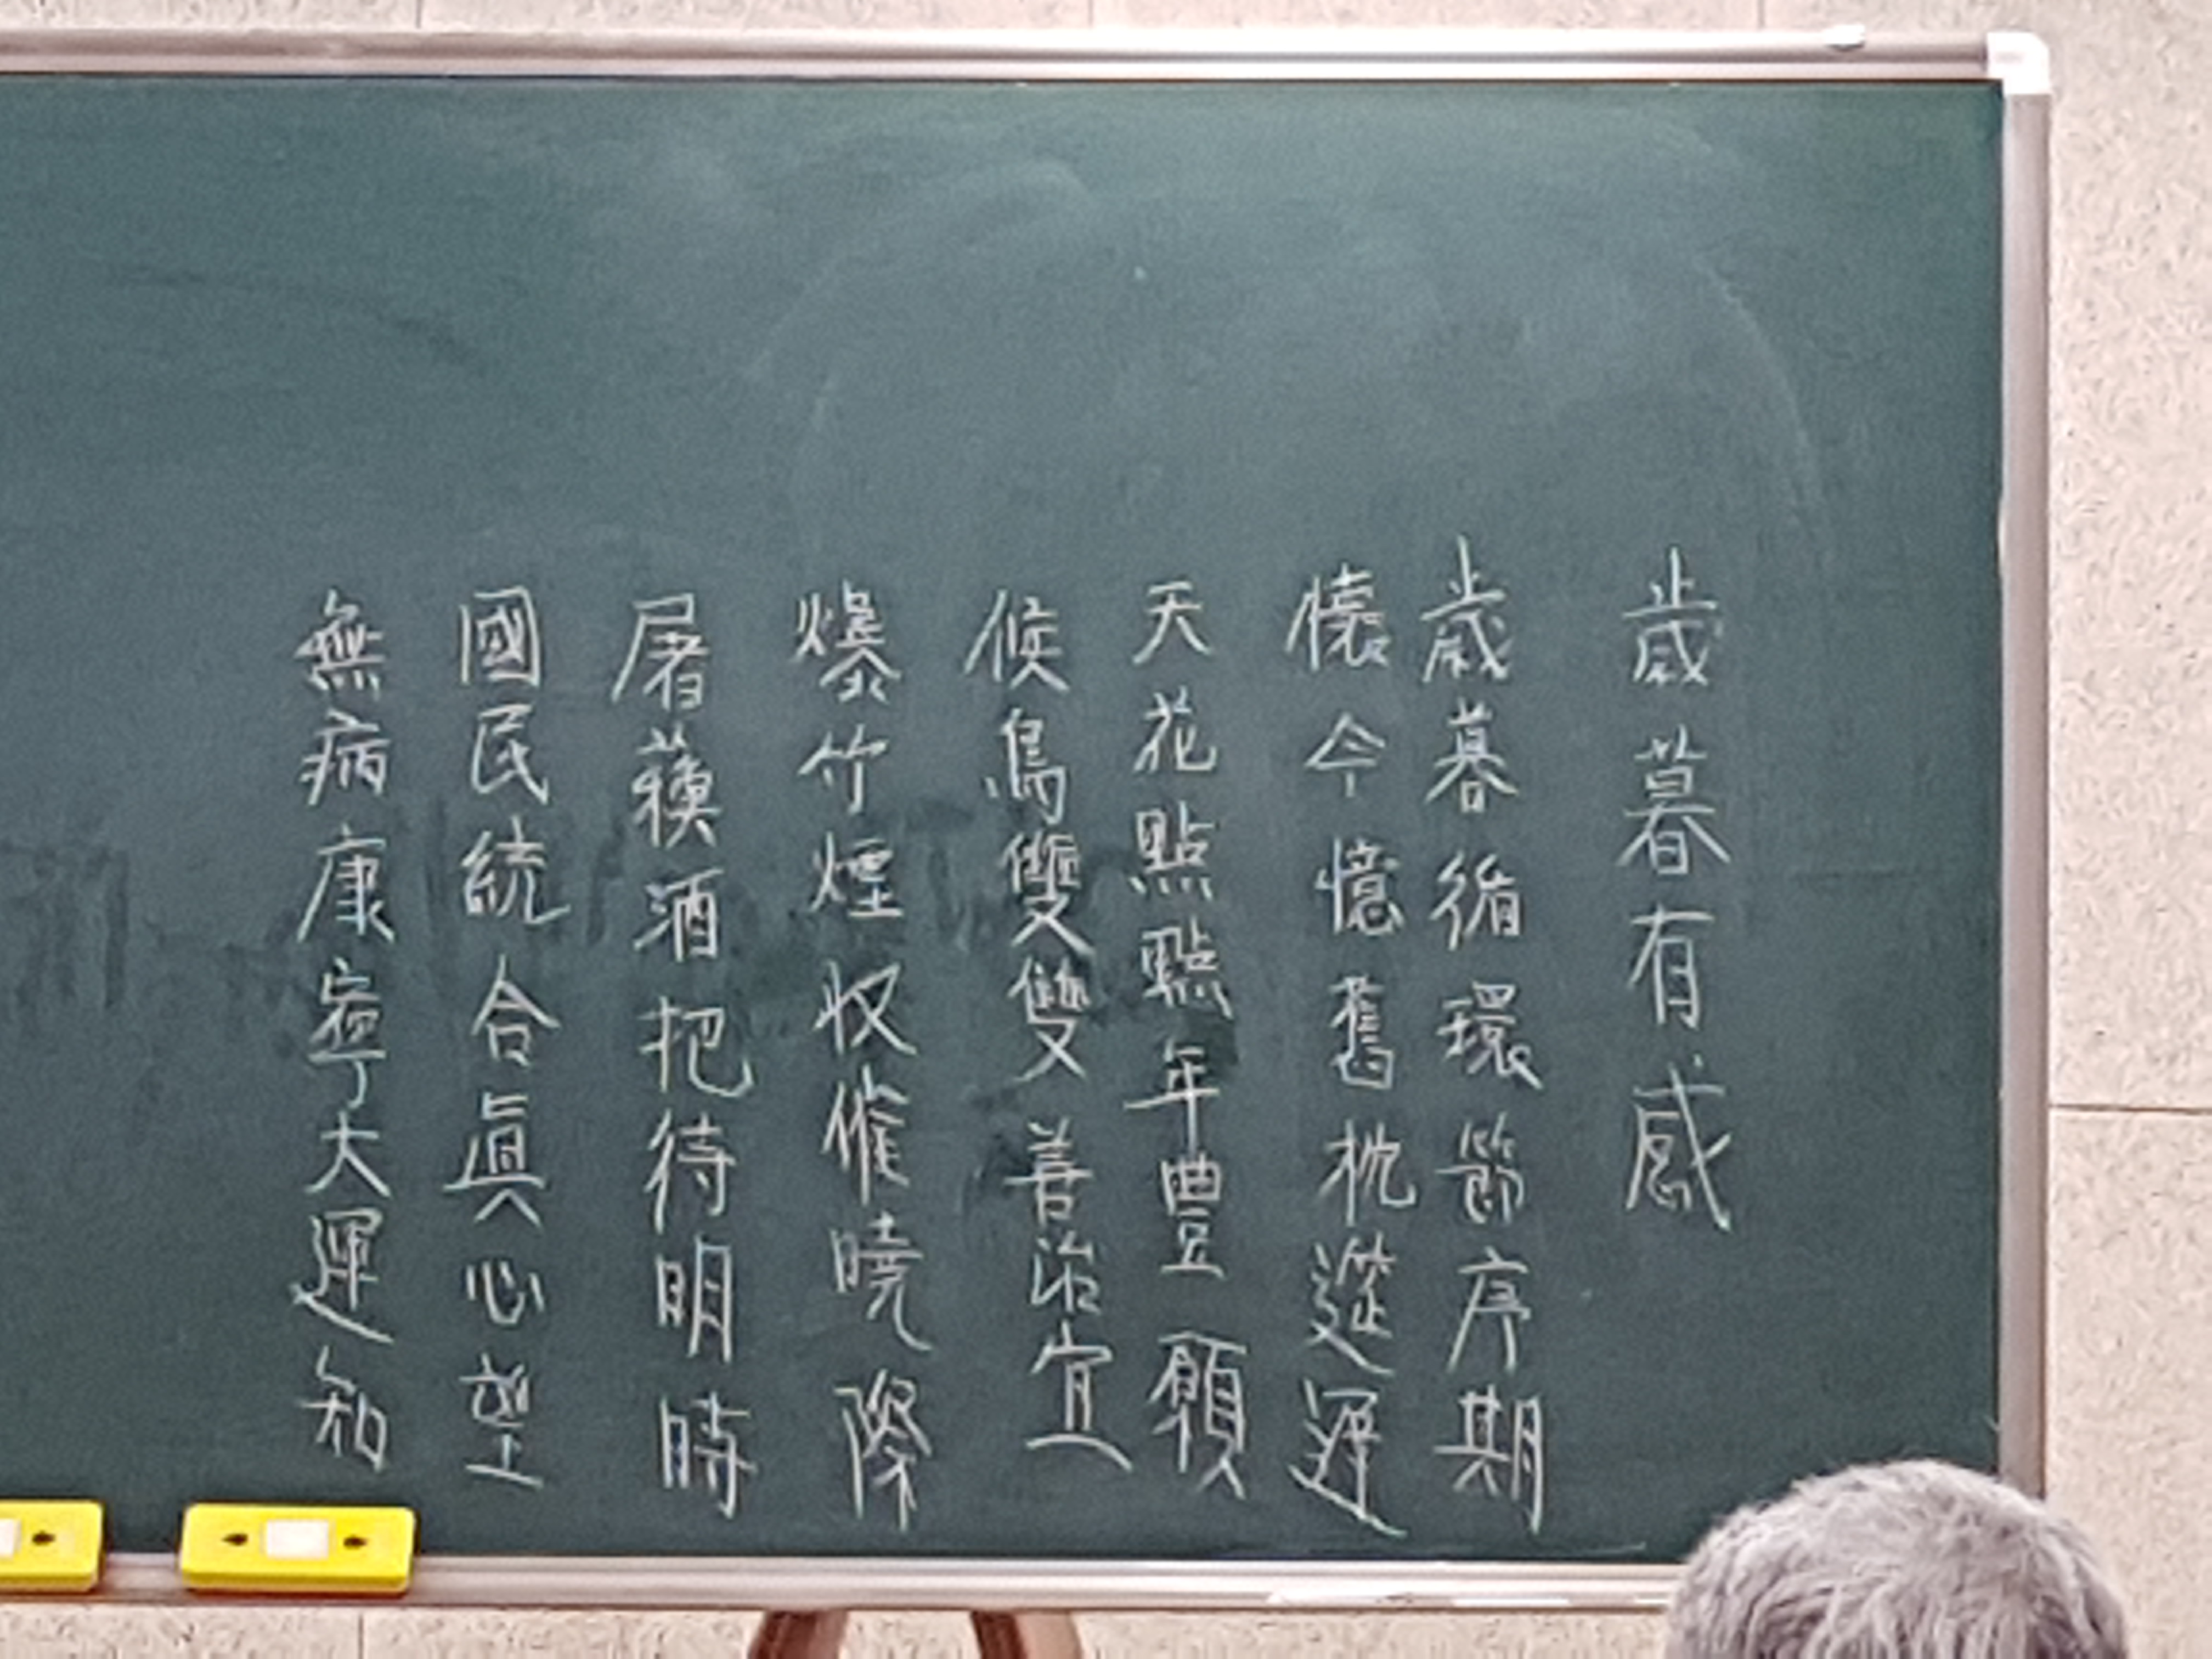 歲暮有感
歲暮循環節序期
懷今憶舊枕遲
天花點點年豊願
候鳥雙雙善治宜
爆竹煙收催曉際
屠蘇酒把待明時
國民統合眞心望
無病康寧大運知